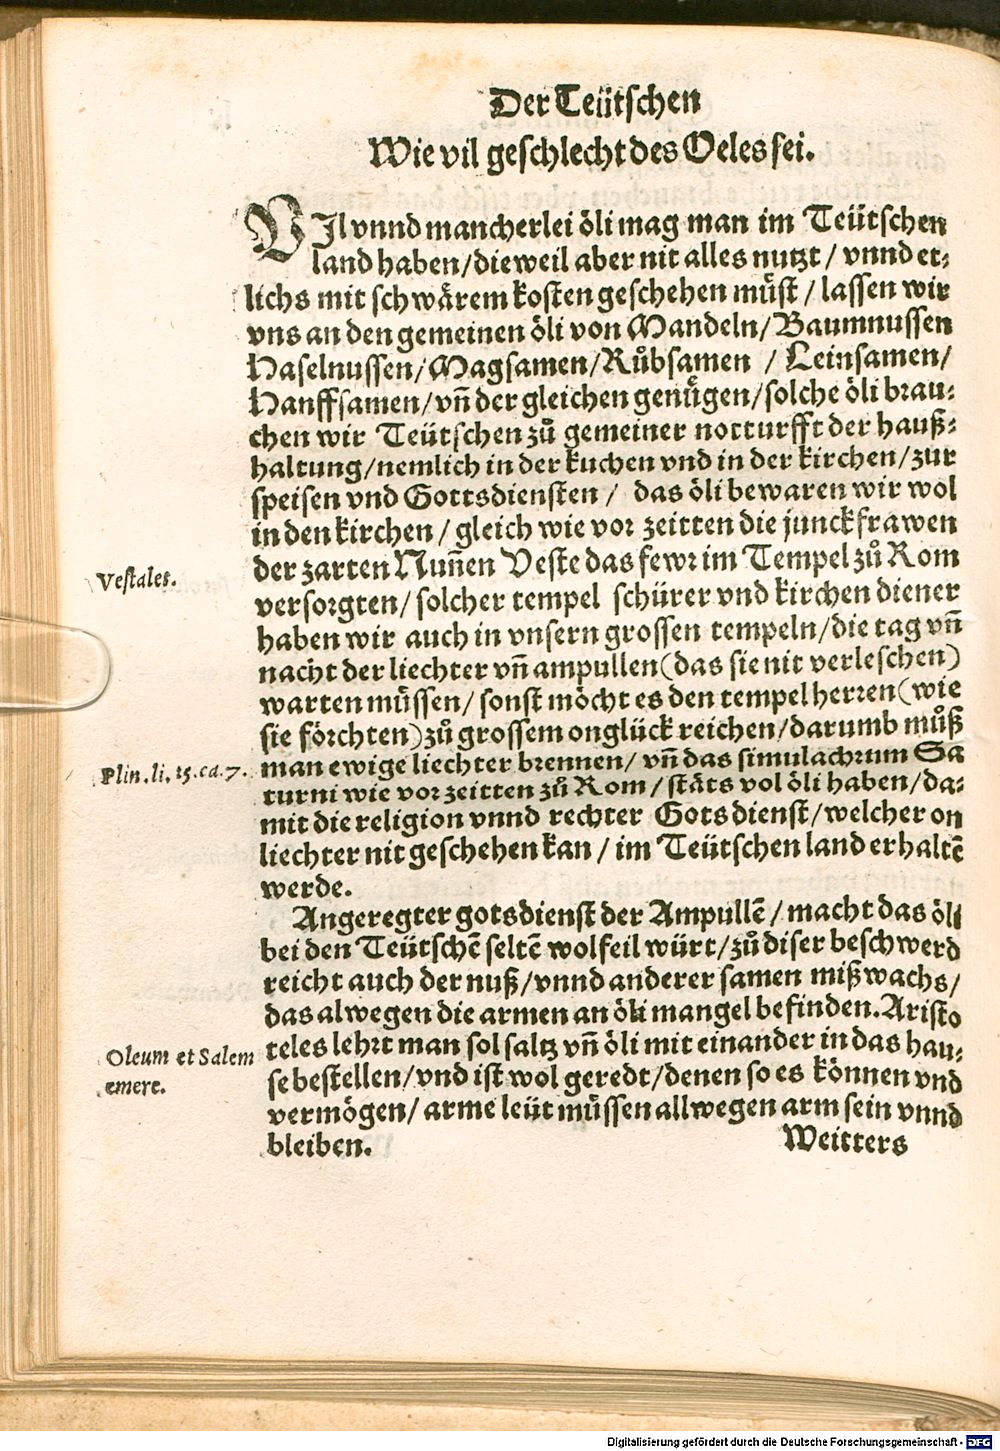 Der Teütschen
Wie vil geschlecht des Oeles sei.
VIl vnnd mancherlei öli mag man im Teütschen
land haben/ dieweil aber nit alles nutzt/ vnnd et⸗
lichs mit schwärem kosten geschehen müst/ lassen wir
vns an den gemeinen öli von Mandeln/ Baumnussen
Haselnussen/ Magsamen/ Růbsamen / Leinsamen/
Hanffsamen/ vñ der gleichen genügen/ solche öli brau⸗
chen wir Teütschen zů gemeiner notturfft der hauß⸗
haltung/ nemlich in der kuchen vnd in der kirchen/ zur
speisen vnd Gottsdiensten / das öli bewaren wir wol
in den kirchen / gleich wie vor zeitten die junckfrawen
der zarten Nuñen Veste das fewr im Tempel zů Rom
versorgten/ solcher tempel schürer vnd kirchen diener
haben wir auch in vnsern grossen tempeln/ die tag vñ
nacht der liechter vñ ampullen (das sie nit verleschen)
warten müssen/ sonst möcht es den tempel herren (wie
sie förchten) zů grossem onglück reichen/ darumb můß
man ewige liechter brennen/ vñ das simulachrum Sa
turni wie vor zeitten zů Rom / stäts vol öli haben/ da⸗
mit die religion vnnd rechter Gots dienst/ welcher on
liechter nit geschehen kan / im Teütschen land erhaltē
werde.
Angeregter gotsdienst der Ampullē / macht das öli
bei den Teütschē seltē wolfeil würt/ zů diser beschwerd
reicht auch der nuß/ vnnd anderer samen mißwachs/
das alwegen die armen an öli mangel befinden. Aristo
teles lehrt man sol saltz vñ öli mit einander in das hau⸗
se bestellen/ vnd ist wol geredt/ denen so es können vnd
vermögen/ arme leüt müssen allwegen arm sein vnnd
bleiben.
Weitters
Vestales.
Plin. li. 15. ca. 7.
Oleum et Salem
emere.
Digitalisierung gefördert durch die Deutsche Forschungsgemeinschaft - DFG